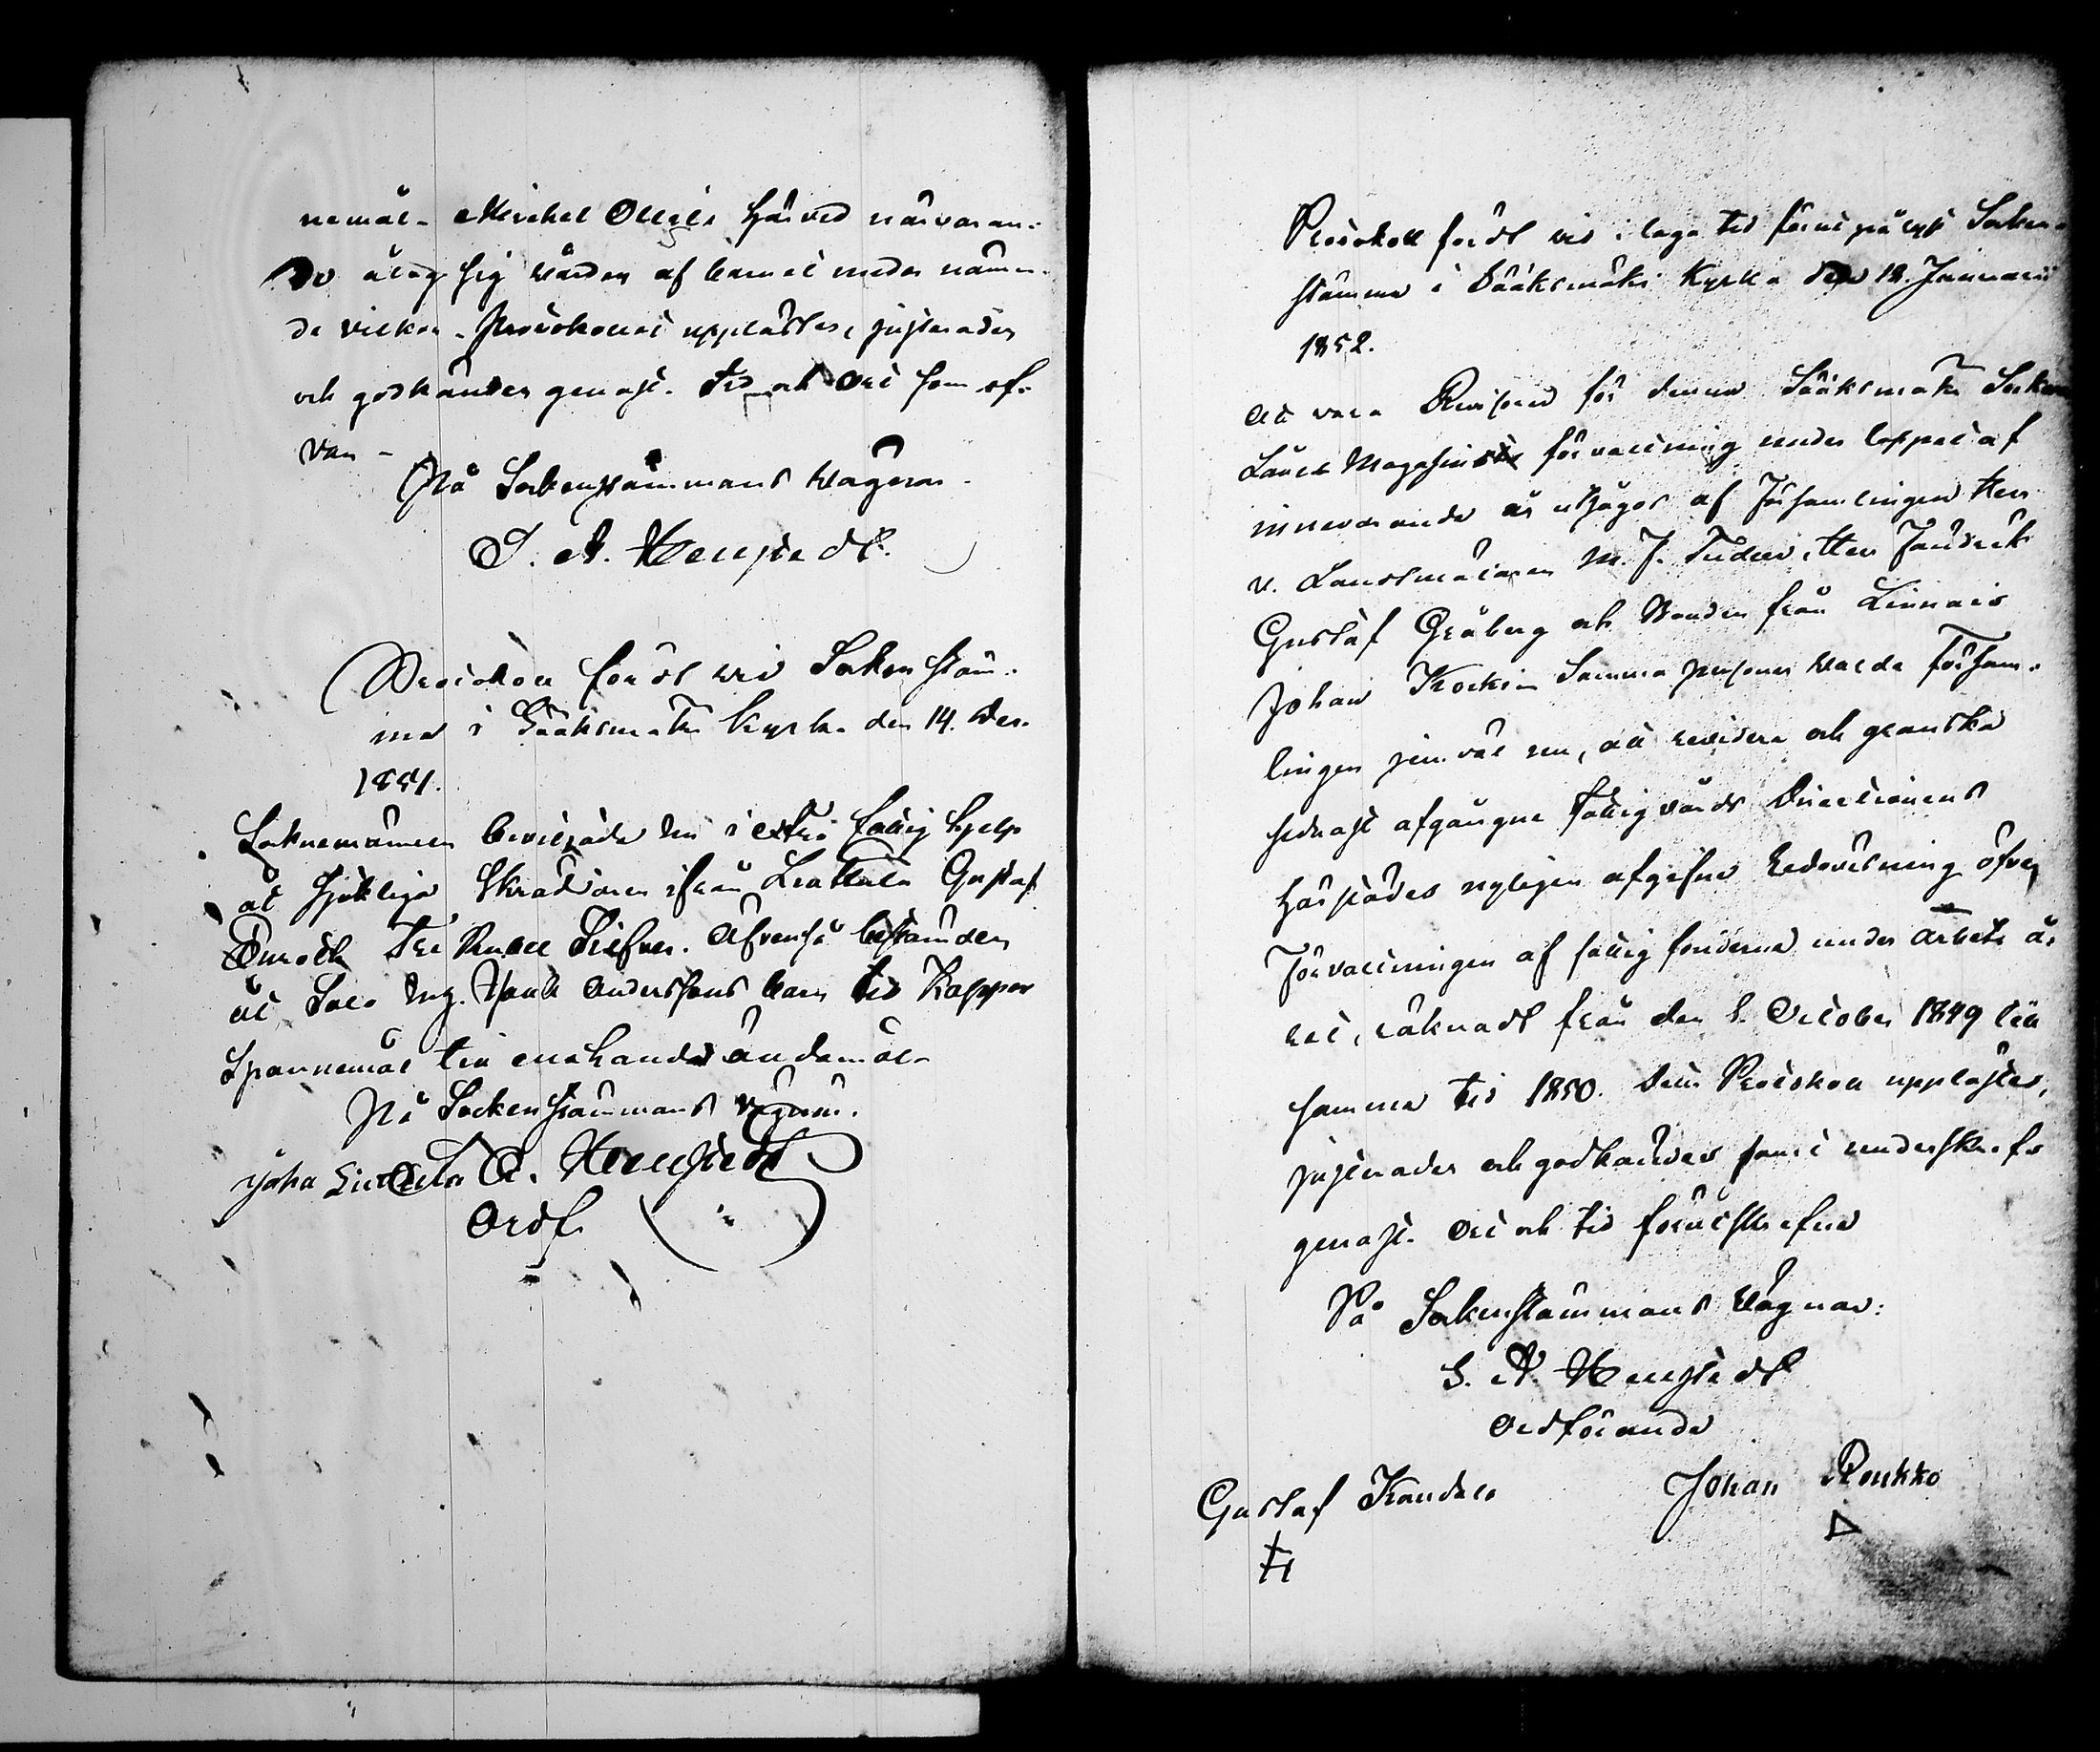 nemål. Michel Ollgls härved närvaran-
de åtog sig vården af barnet under nämn-
da vilkor. Protokollet upplästes, justerades
och godkändes genast. Tid och Ort som of-
van -
På Sockenstämmans vägnar.
S. A. Hengstedt.
Protokoll fördt vid Sockenstäm-
ma i Sääksmäki Kyrka den 14. Dec.
1851.
Socknemännen beviljade nu i extra fattig hjelp
åt sjuklige Skräddaren ifrån Gustaf
Tre Rubel Silfver. Äfvenså bestämdes
åt Salo Anderssons barn tio Kappar
Spannemål till enahanda ändamål.
På Sockenstämmans vägnar.
Joha S. A. Hengstedt
Ordf.
Protokoll fördt vid i laga tid förut pålyst Socken-
stämma i Sääksmäki Kyrka den 18. Januarii
1852.
Att vara Revisorer för denna Sääksmäki Socken
Låne Magasins förvaltning under loppet af
innevarande år utsågos af Församlingen Herr
v. Landtmätaren M. J. Tudeer, Herr Juridick
Gustaf Gråberg och Bonden från Linnais
Johan Krockin Samma personer valde försam-
lingen jemväl nu, att revidera och granska
sednast afgångne Fattigvårds Directionens
härstädes nyligen afgifne Redovisning öfver
Förvaltningen af fattig fonderna under arbets å-
ret, räknadt från den 1. October 1849 till
samma tid 1850. Detta Protokoll upplästes,
justerades och godkändes samt underskrefs
genast. Ort och tid förutskrefne
På Sockenstämmans Vägnar:
S. A. Hengstedt
Ordförande
Gustaf Johan Roukko